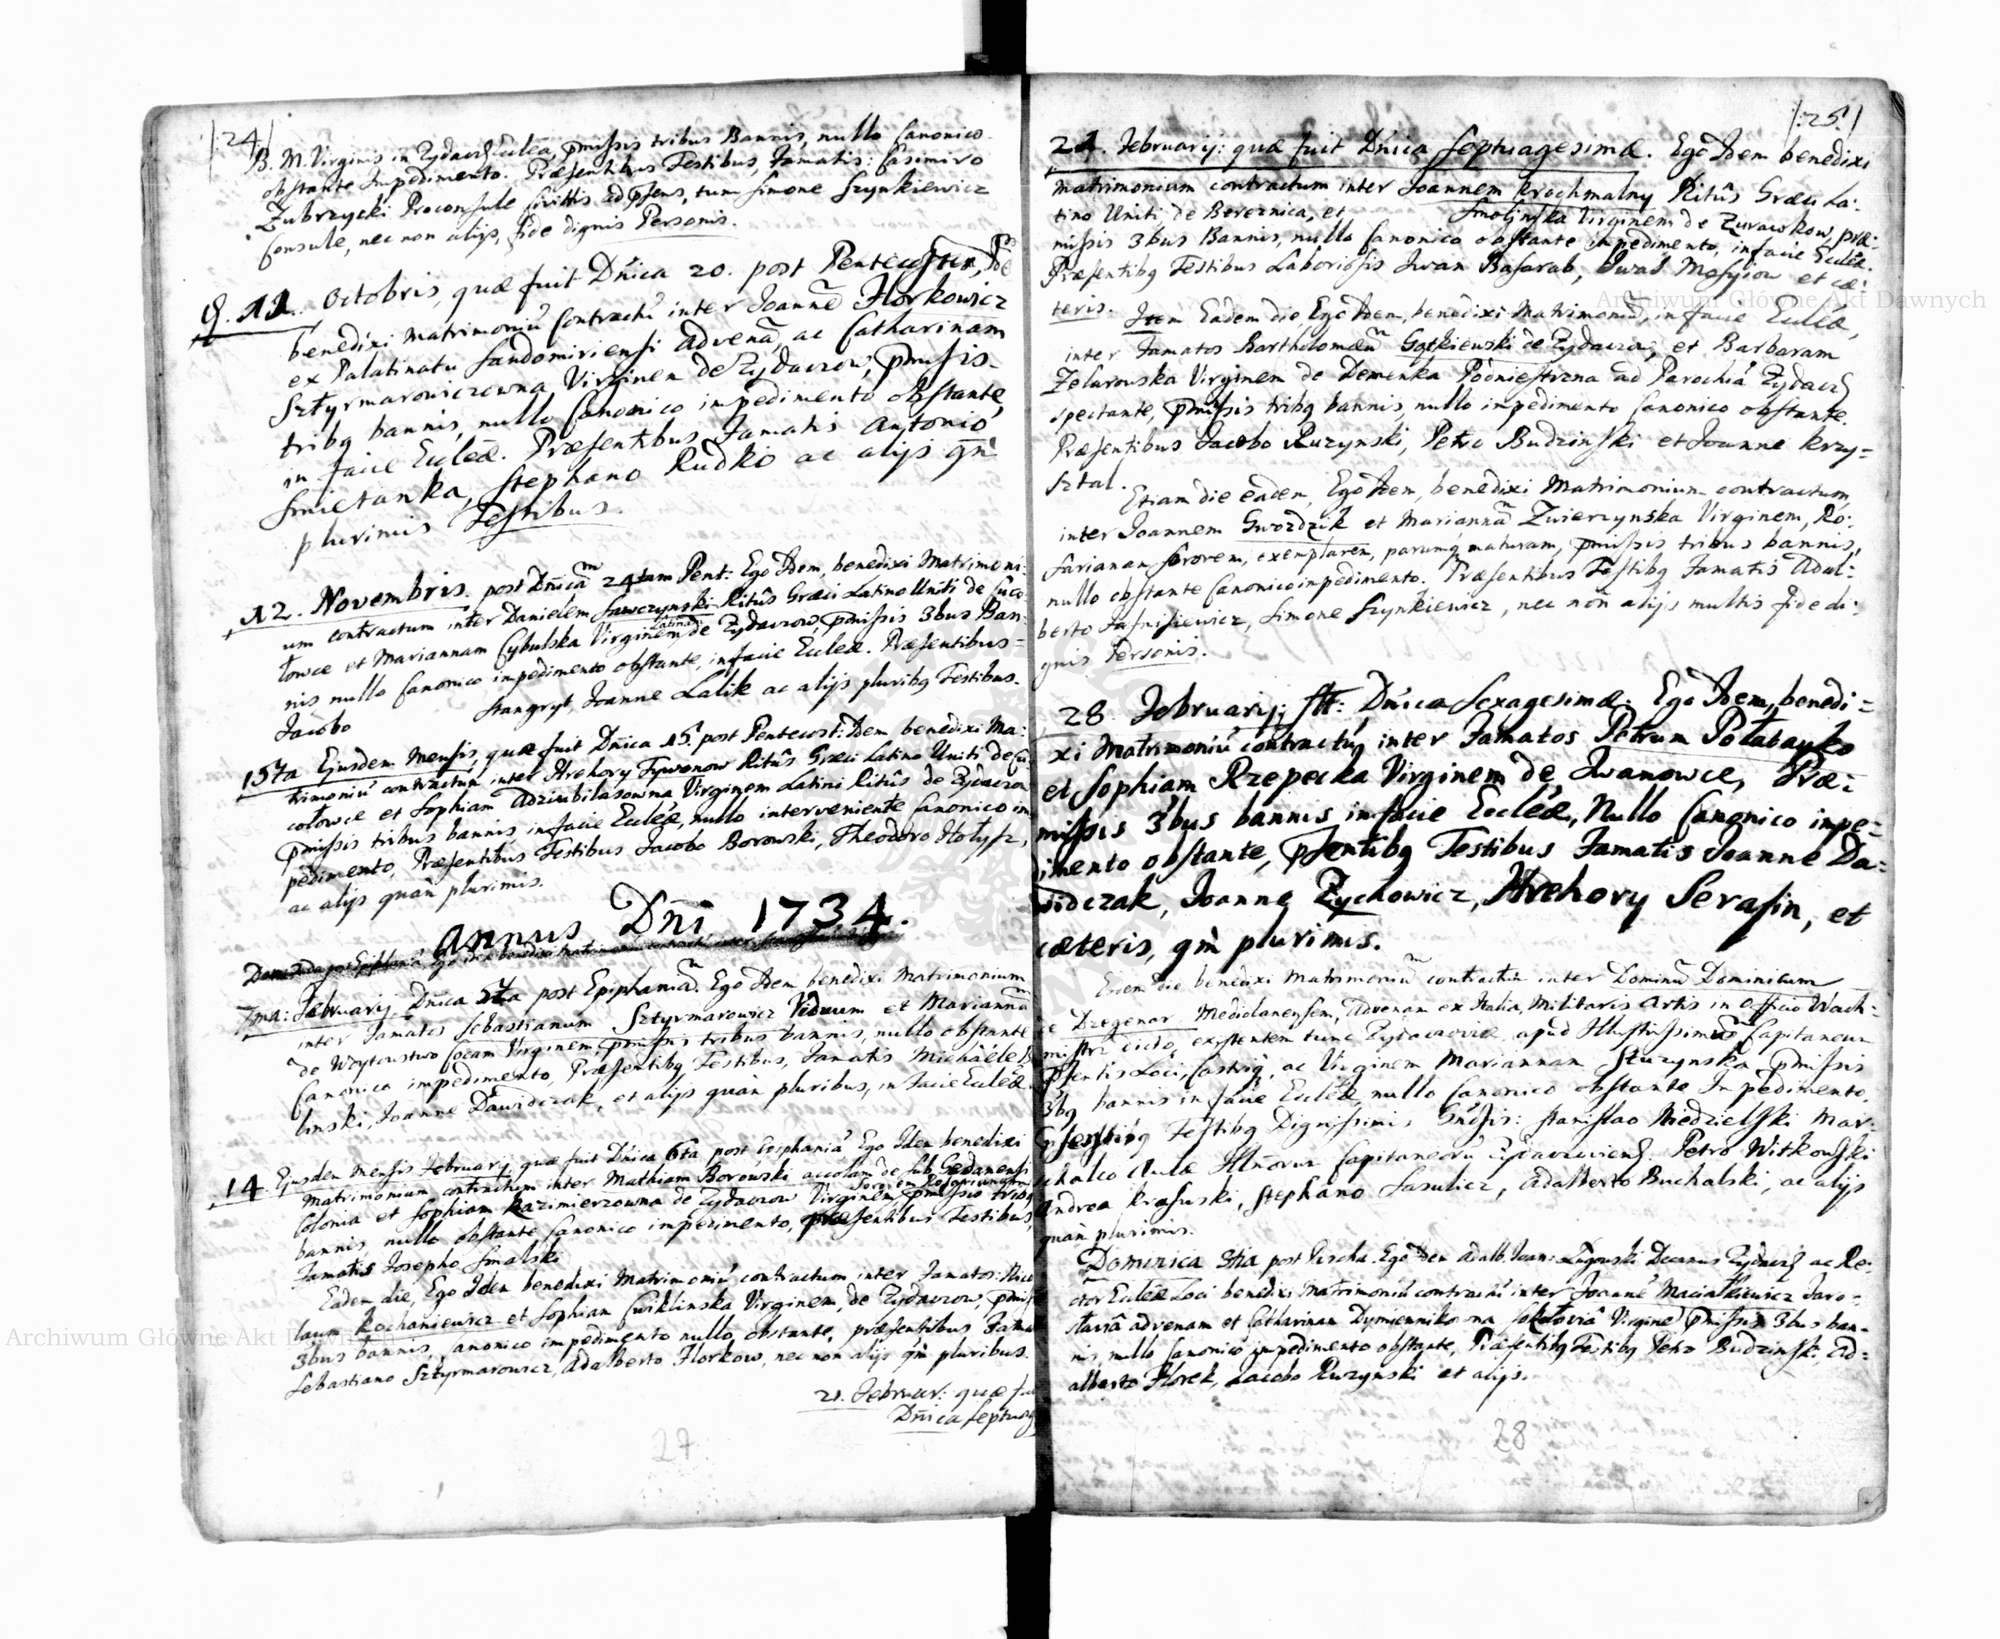 |:24|
B. M. Virginis in Zydacz Eccléa, pmissis tribus Bannis, nullo Canonico
obstante Impedimento. Præsentibus Testibus, Famatis: Casimiro
Zubrzycki Proconsule Civittis ad psens, tum Simone Szynkiewicz
Consule, nec non alijs, fide dignis Personis.
Octobris, quæ fuit Dñica 20. post Pentecosten,
benedixi Matrimoniũ Contractũ inter Joannẽ Florkowicz
ex Palatinatu Sandomiriensi advenã, ac Catharinam
Sztyrmarowiczowna Virginem de Zydaczow, pmissis
tribq bannis, nullo Canonico impedimento obstante,
in facie Eccleæ. Præsentibus Famatis Antonio
Smietanka, Stephano Rudko ac alijs qm
plurimis Testibus.
12. Novembris. post Dñicã 24tam Pent: Ego Idem, benedixi Matrimoni:
um contractum inter Danielem Sawczynski Ritûs Græci Latino Uniti de Suco:
lowce et Mariannam Cybulska Virginem Latini, de Zydaczow, pmissis 3bus Ban:
nis nullo Canonico impedimento obstante, in facie Eccleæ. Præsentibus
Jacobo Stangryt, Joanne Lalik ac alijs pluribq Testibus.
15ta Ejusdem Mensis, quæ fuit Dñica 25. post Pentecost: Idem benedixi Ma:
trimoniũ contractũm inter Hrehory Tywonow Ritûs Græci Latino Uniti de Su
colowce et Sophiam Adziubilasowna Virginem Latini Ritûs de Zydaczow
pmissis tribus bannis in facie Eccleæ, nullo interveniente Canonico im
pedimento, Præsentibus Testibus Jacobo Borowski, Theodoro Holysz,
ac alijs quàm plurimis.
Annus Dñi 1734.
7ma: Februarij Dñica 5ta post Epiphaniã. Ego Idem benedixi Matrimonium
inter Famatos Sebastianum Sztyrmarowicz Viduum et Mariannã
de Woytowstwo Virginem, pmissis tribus bannis, nullo obstante
Canonico impedimento, Præsentibq Testibus, Famatis Michaële
linski, Joanne Dawidczak, et alijs quàm pluribus, in Facie Eccleæ.
14. Ejusdem Mensis Februarij quæ fuit Dñica 6ta post Epiphaniã Ego Idem benedixi
Matrimonium contractum inter Mathiam Borowski accolam de sub Gedanensi
Colonia et Sophiam Kazimierzowna de Zydaczow Virginem, pmissis tribq
bannis, nullo obstante Canonico impedimento, præsentibus Testibus,
Famatis Josepho Smalski
Eadem die, Ego Idem benedixi Matrimoniũ contractum inter Famatos: Nico
laum Kochaniewicz et Sophiam Cwiklinska Virginem, de Zydaczow, pmis
3bus bannis, Canonico impedimento nullo, obstante, præsentibus Fama
Sebastiano Sztyrmarowicz, Adalberto Florkow, nec non alijs qm pluribus.
21. Februar: quæ fu
Dñica Septuag
27
|:25:|
21. Februarij: quæ fuit Dñica Septuagesimæ. Ego Idem benedixi
Matrimonium contractum inter Joannem Krochmalny Ritûs Græci La:
tino Uniti de Bereznica, et Smolinska Virginem de Zurawkow, præ:
missis 3bus Bannis, nullo Canonico obstante impedimento, in facie Eccleæ.
Præsentibq Testibus Laboriosis Iwan Basarab, Iwas Mosyiow et cæ:
teris.
Item Eadem die, Ego Idem, benedixi Matrimoniũ, in facie Eccleæ,
inter Famatos Bartholomæũ Gątkiewski de Zydaczow, et Barbaram
Zelarowska Virginem de Demenka Podniestrzna ad Parochiã Zydacz
spectante, pmissis tribq bannis, nullo impedimento Canonico obstante.
Præsentibus Jacobo Ruzynski, Petro Budzinski et Joanne Krzy=
sztal.
Etiam die eadem, Ego Idem, benedixi Matrimonium contractum,
inter Joannem Gwozdzik et Mariannã Zwierzynska Virginem, Ro:
sarianam sororem, exemplarem, parumq maturam, pmissis tribus bannis,
nullo obstante Canonico impedimento. Præsentibus Testibq Famatis Adal:
berto Jasnisiewicz, Simone Szynkiewicz, nec non alijs multis fide di:
gnis Personis.
28. Februarij, Dñica Sexagesimæ. Ego Idem, benedi=
xi Matrimoniũ contractũ inter Famatos Petrum Polabayko
et Sophiam Rzepecka Virginem de Iwanowce, Præ:
missis 3bus bannis in facie Eccleæ, Nullo Canonico impe=
dimento obstante, psentibq Testibus Famatis Joanne Da=
widczak, Joanne Zychowicz, Hrehory Serafin, et
cæteris, qm plurimis.
Eadem die benedixi Matrimoniũ contractum inter Dominũ Dominicum
de Dregenar Mediolanensem, Advenam ex Italia, Militaris Artis in Officio Wach=
mistrz existentem tunc Zydaczoviæ, apud Illustrissimum Capitaneum
psentis Loci, ac Virginem Mariannam Stuzynska, pmissis
3bq bannis in facie Eccleæ nullo Canonico obstante Impedimento,
psentibq Testibq Dignissimis Gnosis: Stanislao Niedzielski Mar:
schalco Aulæ Illmorum Capitaneorũ Zydaczoviens. Petro Witkowski
Andrea Krasuski, Stephano Sasulicz, Adalberto Buchalski, ac alijs
quàm plurimis.
Dominica 3tia post Pascha. Ego Idem Adalb. Joan: Ługowski Decanus Zydacz ac Re:
ctor Eccleæ Loci benedixi Matrimoniũ contractũ inter Joannẽ Maciaszkiewicz Jaro=
slaviâ advenam et Catharinam Dymiennikowna Sokoloviâ Virginẽ pmissis 3bus ban=
nis, nullo Canonico impedimento obstante, Præsentibq Testibq Petro Budzinski, Ad=
alberto Florek, Jacobo Ruzynski et alijs.
28
Archiwum Główne Akt Dawnych
Archiwum Główne Akt Dawnych